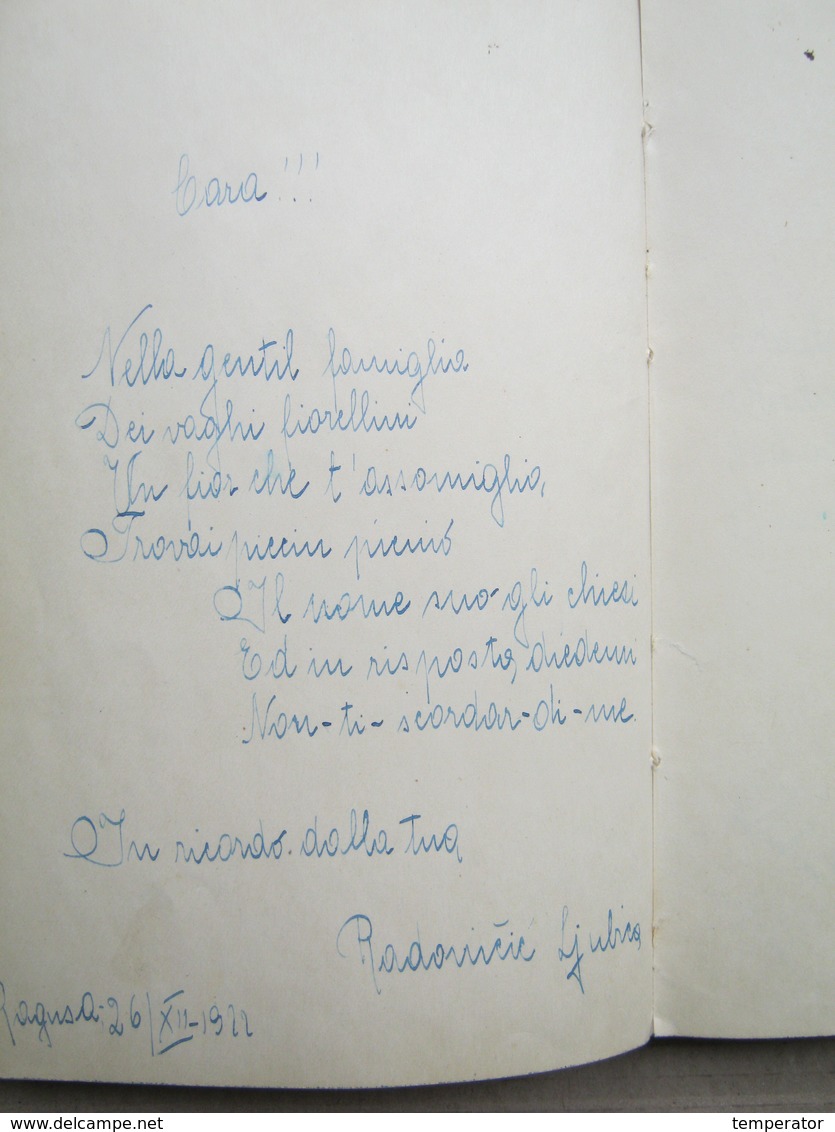 Cara!!!
Nella gentil famiglia
Dei vaghi fiorellini
Un fior che t'assomiglia,
Trovai piccin piccinó
Il nome suo gli chiesi
Ed in risposta, diedemi
Non-ti-scordar-di-me.
In ricordo dalla tua
Radoničić Ljubica
Ragusa, 26/XII-1922
delcampe.net
temperator